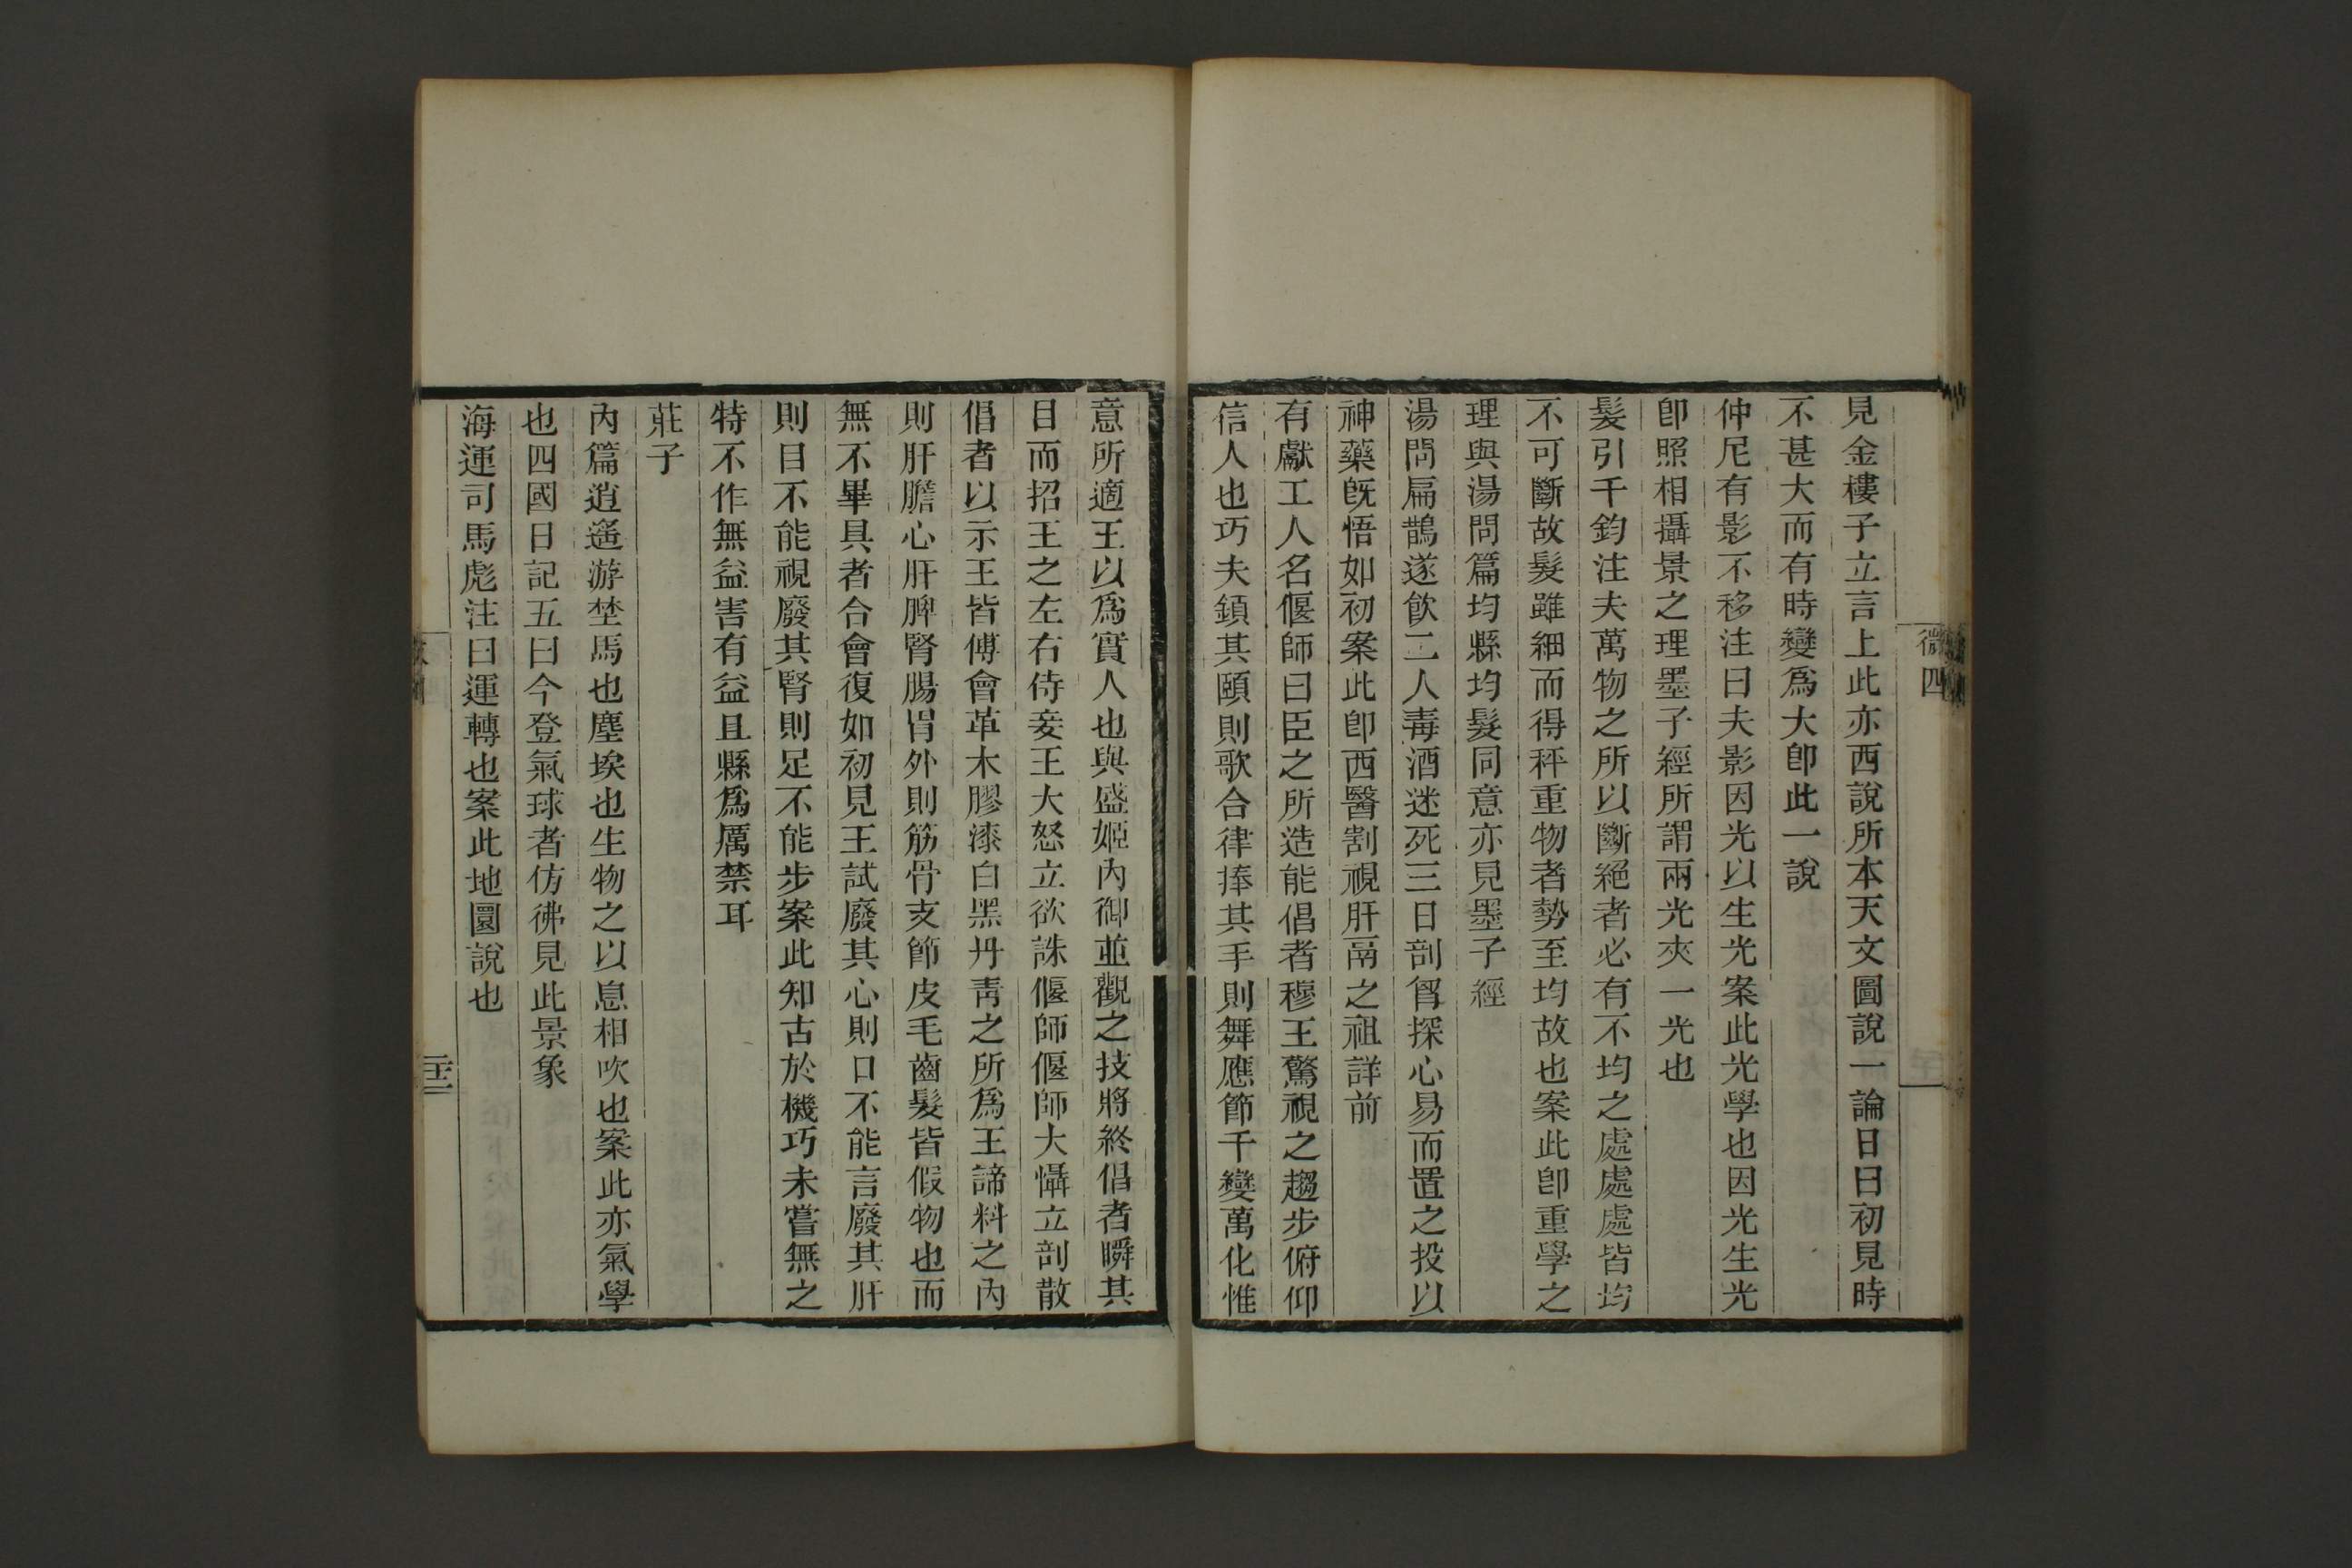 微四
見金樓子立言上此亦西說所本天文圖說一論日曰初見時
不甚大而有時變爲大卽此一說
仲尼有影不移注曰夫影因光以生光案此光學也因光生光
卽照相攝景之理墨子經所謂兩光夾一光也
髮引千鈞注夫萬物之所以斷絕者必有不均之處處處皆均
不可斷故髮雖細而得秤重物者勢至均故也案此卽重學之
理與湯問篇均縣均髮同意亦見墨子經
湯問扁鵲遂飮二人毒酒迷死三日剖胷探心易而置之投以
神藥旣悟如初案此卽西醫割視肝鬲之祖詳前
有獻工人名偃師曰臣之所造能倡者穆王驚視之趨步俯仰
信人也巧夫鎮其頤則歌合律捧其手則舞應節千變萬化惟
意所適王以爲實人也與盛姬內御並觀之技將終倡者瞬其
目而招王之左右侍妾王大怒立欲誅偃師偃師大懾立剖散
倡者以示王皆傅會革木膠漆白黑丹靑之所爲王諦料之內
則肝膽心肝脾腎腸胃外則筋骨支節皮毛齒髮皆假物也而
無不畢具者合會復如初見王試廢其心則口不能言廢其肝
則目不能視廢其腎則足不能步案此知古於機巧未嘗無之
特不作無益害有益且縣爲厲禁耳
莊子
內篇逍遙游埜馬也塵埃也生物之以息相吹也案此亦氣學
也四國日記五曰今登氣球者仿彿見此景象
海運司馬彪注曰運轉也案此地圜說也